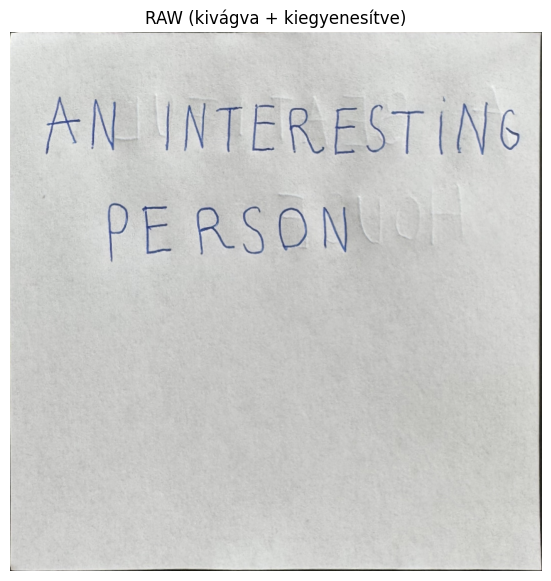 RAW (kivágva + kiegyenesítve)
AN INTERESTING
PERSON